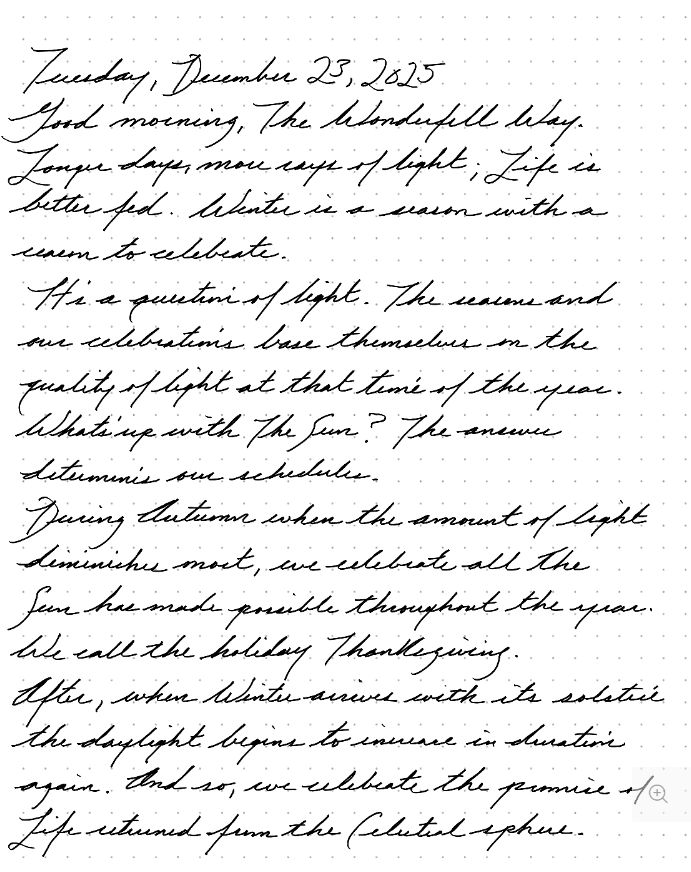 Tuesday, December 23, 2025
Good morning, The Wonderfull Way.
Longer days, more rays of light; Life is
better fed. Winter is a season with a
reason to celebrate.
It's a question of light. The seasons and
our celebrations base themselves on the
quality of light at that time of the year.
What's up with The Sun? The answer
determines our schedules.
During Autumn when the amount of light
diminishes most, we celebrate all The
Sun has made possible throughout the year.
We call the holiday Thanksgiving.
After, when Winter arrives with its solstice
the daylight begins to increase in duration
again. And so, we celebrate the promise of
Life returned from the Celestial sphere.